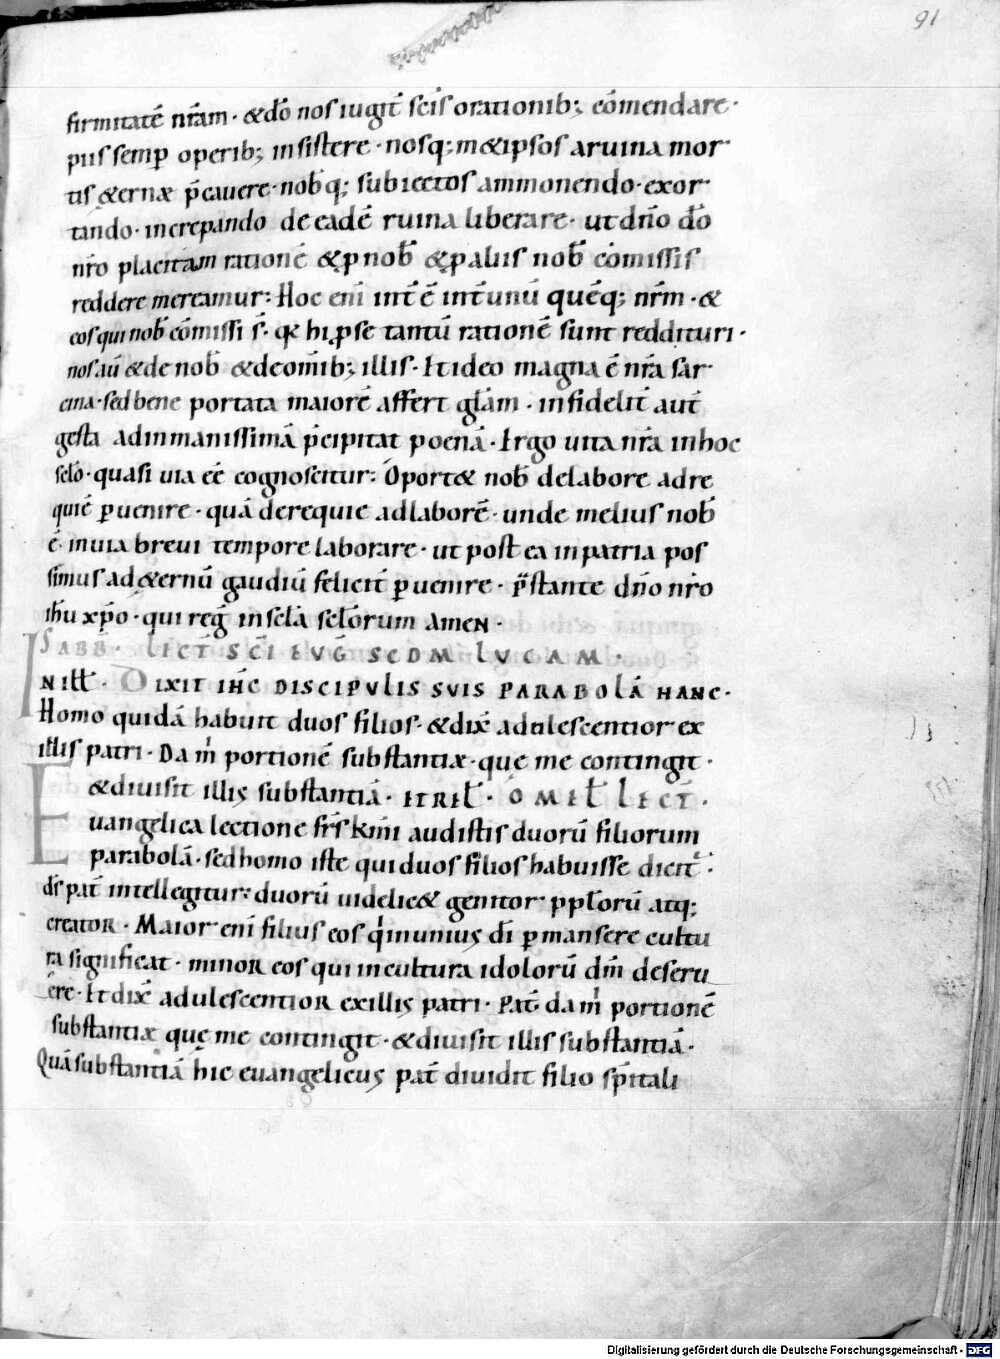 91
firmitatē nr̄am · & dō nos iugit̄ sc̄is orationib; cōmendare ·
piis semꝑ operib; insistere · nosq; m&ipsos a ruina mor
tis &ernæ p̄cauere · nob̄q; subiectos ammonendo · exor
tando · increpando de eadē ruina liberare · ut dn̄o dō
nr̄o placitam rationē & ꝓ nob̄ & ꝓ aliis nob̄ cōmissis
reddere mereamur: Hoc eni int̄ ē int̄ unū quēq; nr̄m · &
eos qui nob̄ cōmissi s̄ · hi ꝓ se tantū rationē sunt reddituri ·
nos aū & de nob̄ & de om̄ib; illis · Et ideo magna ē nr̄a sar
cina · sed bene portata maiorē affert gl̄am · infidelit̄ aut̄
gesta ad inmanissimā p̄cipitat poenā · Ergo uita nr̄a in hoc
sc̄lo · quasi uia eē cognoscitur: Oport& nob̄ de labore ad re
quiē ꝑuenire · quā de requie ad laborē · unde melius nob̄
ē in uia breui tempore laborare · ut post ea in patria pos
simus ad &ernū gaudiū felicit̄ ꝑuenire · p̄stante dn̄o nr̄o
ih̄u xp̄o · qui reḡ in sc̄la sc̄lorum AMEN ·
SABB · LECT SC̄I EVḠ SCDM LVCAM ·
IN ILL̄ · DIXIT IHC̄ DISCIPVLIS SVIS PARABOLĀ HANC ·
Homo quidā habuit duos filios · & dix̄ adulescentior ex
illis patri · Da m̄ portionē substantiæ · quę me contingit ·
& diuisit illis substantiā · ET REL̄ · OMEL̄ LECT̄ ·
Euangelica lectione fr̄s k̄mi audistis duorū filiorum
parabolā · sed homo iste qui duos filios habuisse dicit̄ ·
ds̄ pat̄ intellegitur: duorū uidelic& genitor pp̄lorū atq;
creator · Maior eni filius eos qͥ in unius dī ꝑmansere cultu
ra significat · minor eos qui in cultura idolorū dm̄ deseru
ere · Et dix̄ adulescentior ex illis patri · Pat̄ da m̄ portionē
substantiæ quę me contingit · & diuisit illis substantiā ·
Quā substantiā hic euangelicus pat̄ diuidit filio sp̄itali
Digitalisierung gefördert durch die Deutsche Forschungsgemeinschaft - DFG